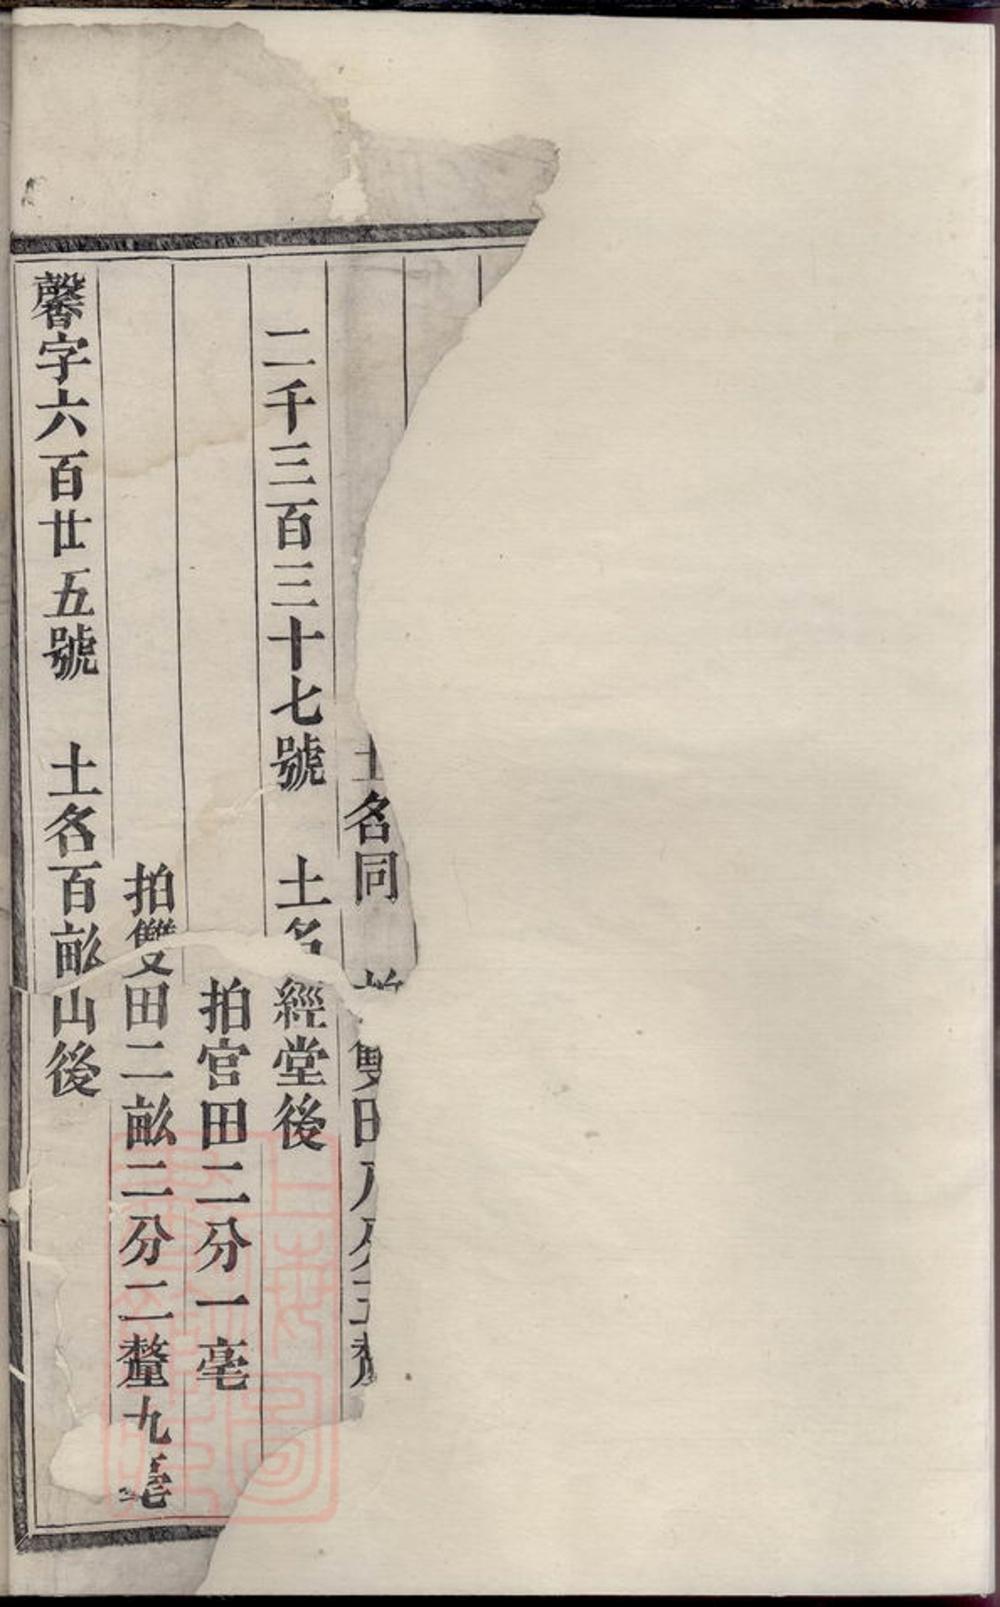 土名同 雙田八分三釐
二千三百三十七號 土名經堂後
拍官田二分一毫
拍雙田二畝二分二釐九毫
馨字六百廿五號 土名百畝山後